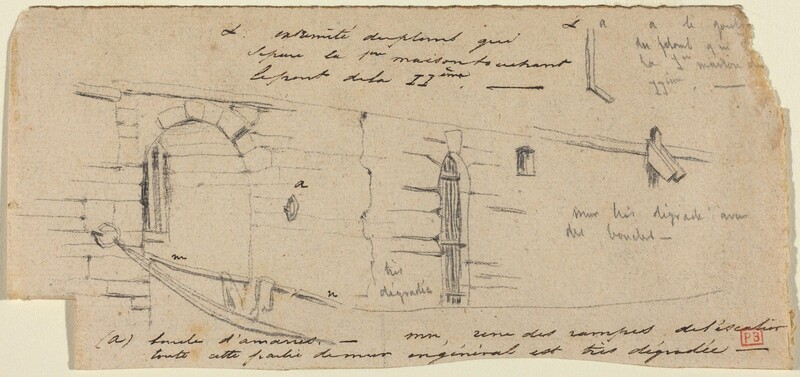 L: extrémité du plomb qui
separe la 1re maison touchant
le pont de la IIème. —
L a
a le
du plomb qui
la 1re maison
IIème. —
a
m
n
mur très dégradé avec
des boucles —
très
dégradée
(a) boucle d'amarres. — mn, une des rampes de l'escalier
toute cette partie de mur en général est très dégradée —
P3